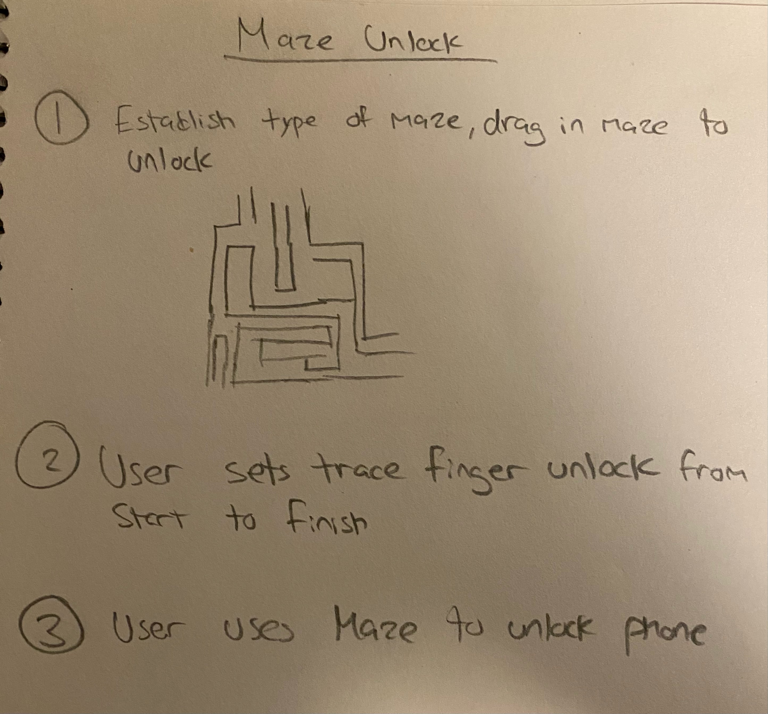 Maze Unlock
① Establish type of Maze, drag in maze to
unlock
② User sets trace finger unlock from
Start to finish
③ User uses Maze to unlock phone